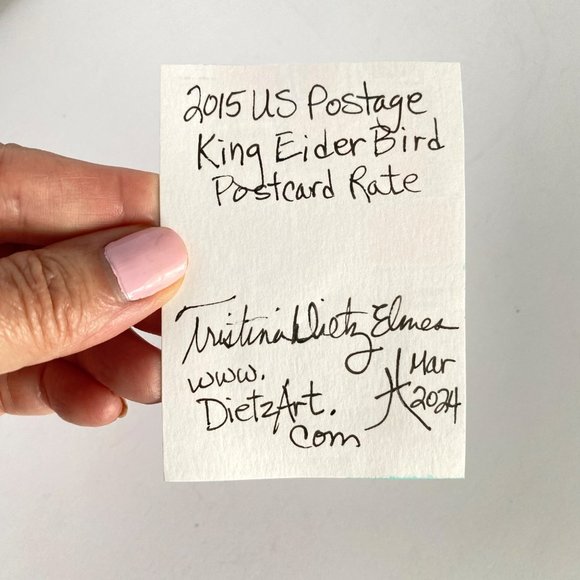 2015 US Postage
King Eider Bird
Postcard Rate
Tristina Dietz Elmes
www.
DietzArt.
com
Mar
2024